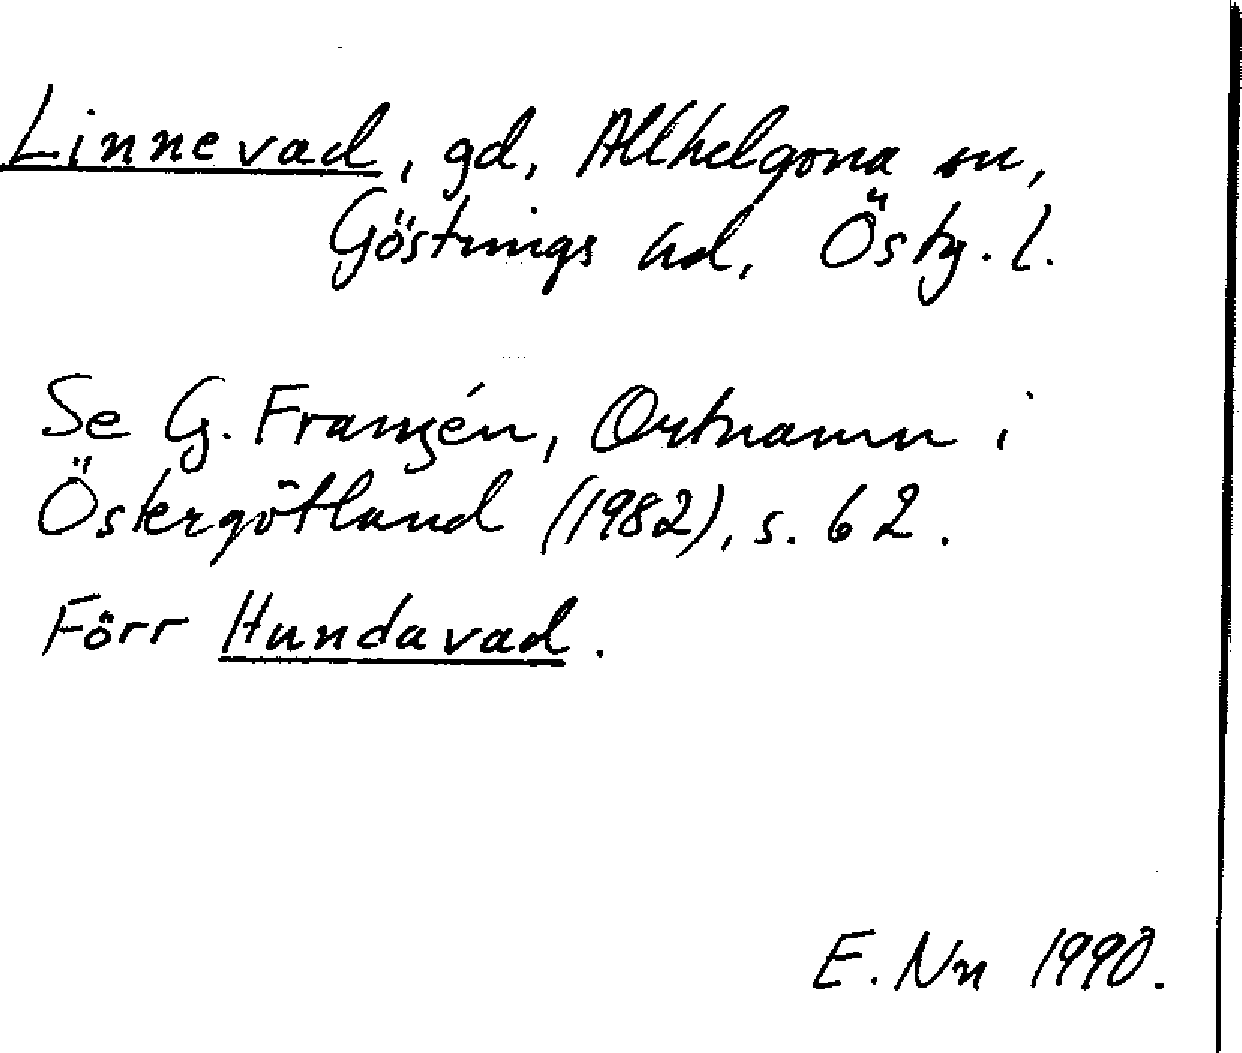 Linnevad, gd, Allhelgona sn,
Göstrings hd, Östg. l.
Se G. Franzén, Ortnamn i
Östergötland (1982), s. 62.
Förr Hundavad.
E. Nn 1990.